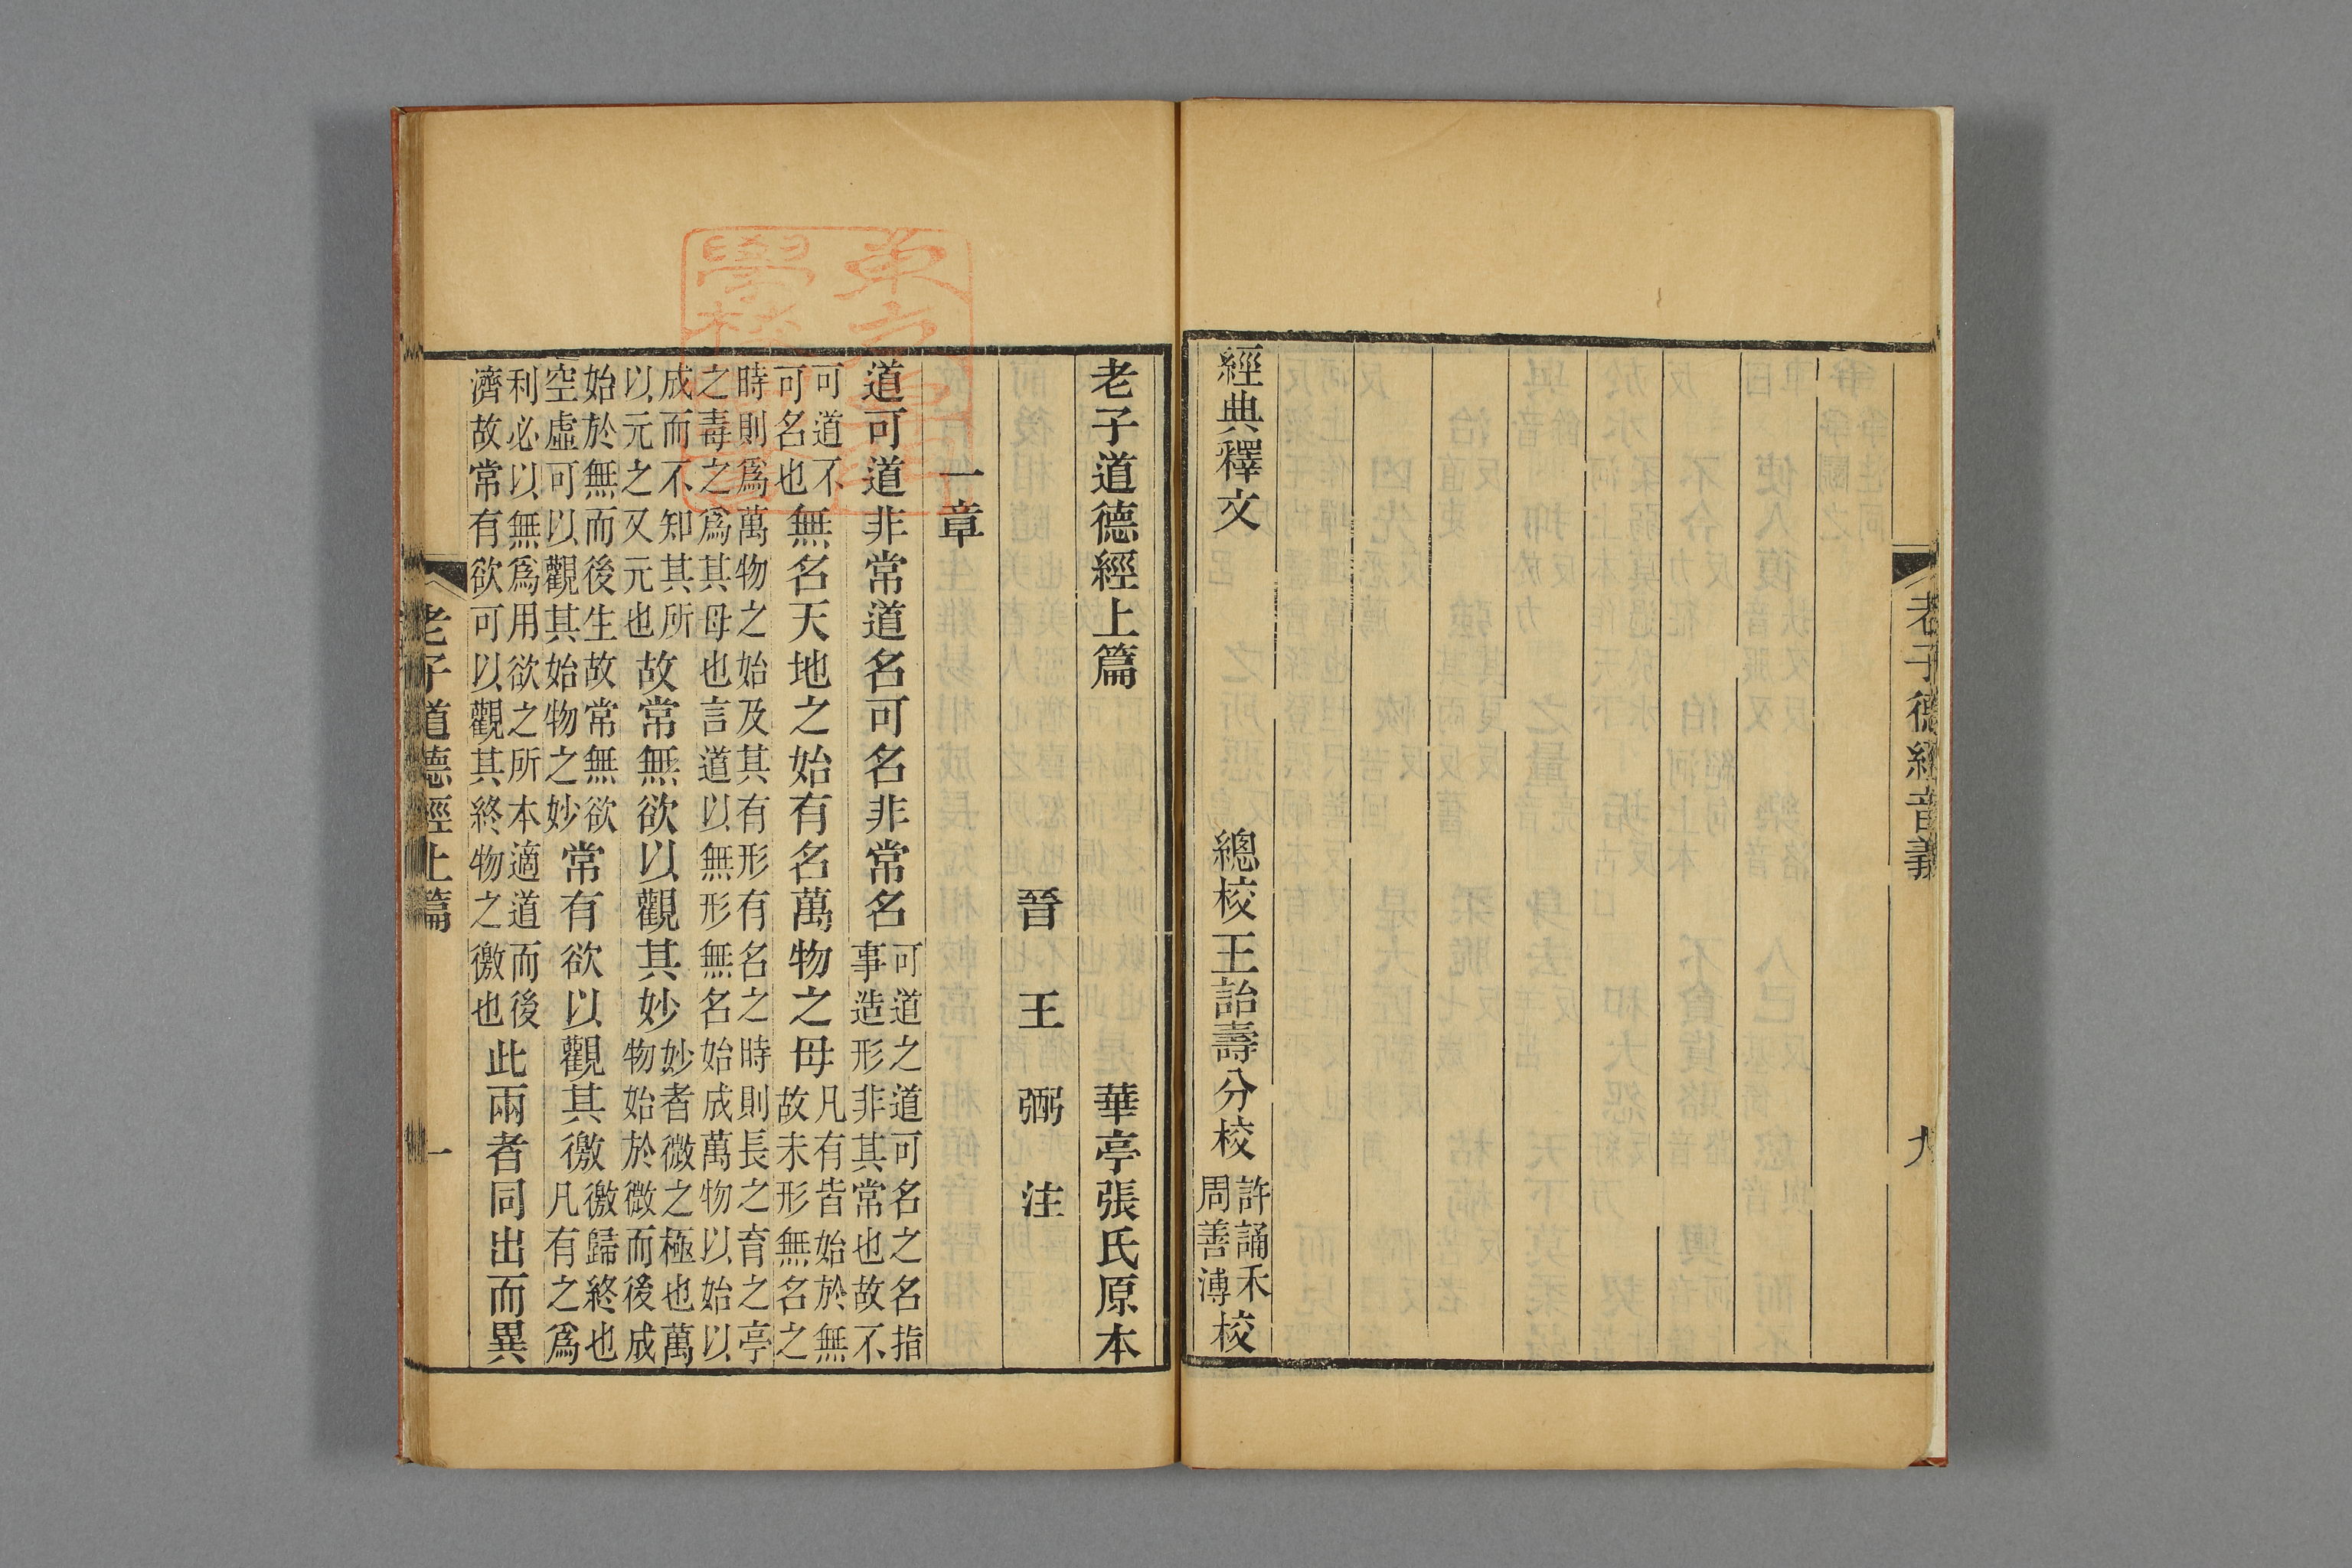 老子德經音義
九
經典釋文 總校王詒壽分校許誦禾周善溥校
老子道德經上篇 華亭張氏原本
晉 王 弼 注
一章
道可道非常道名可名非常名可道之道可名之名指事造形非其常也故不
可道不可名也無名天地之始有名萬物之母凡有皆始於無故未形無名之
時則爲萬物之始及其有形有名之時則長之育之亭之毒之爲其母也言道以無形無名始成萬物以始以
成而不知其所以元之又元也故常無欲以觀其妙妙者微之極也萬物始於微而後成
始於無而後生故常無欲空虛可以觀其始物之妙常有欲以觀其徼徼歸終也凡有之爲
利必以無爲用欲之所本適道而後濟故常有欲可以觀其終物之徼也此兩者同出而異
老子道德經上篇
一